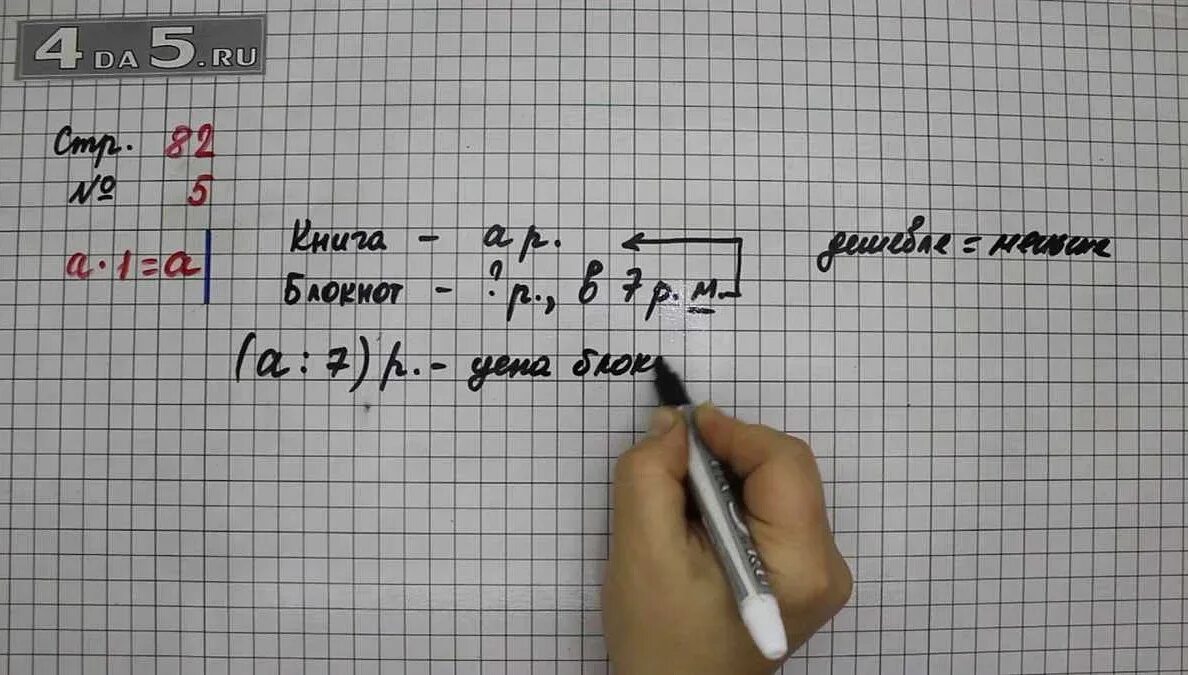 4DA5.RU
Стр. 82
№ 5
a·1=a
Книга - а р.
дешевле = меньше
Блокнот - ? р., в 7 р. м.
(а : 7) р. - цена блок